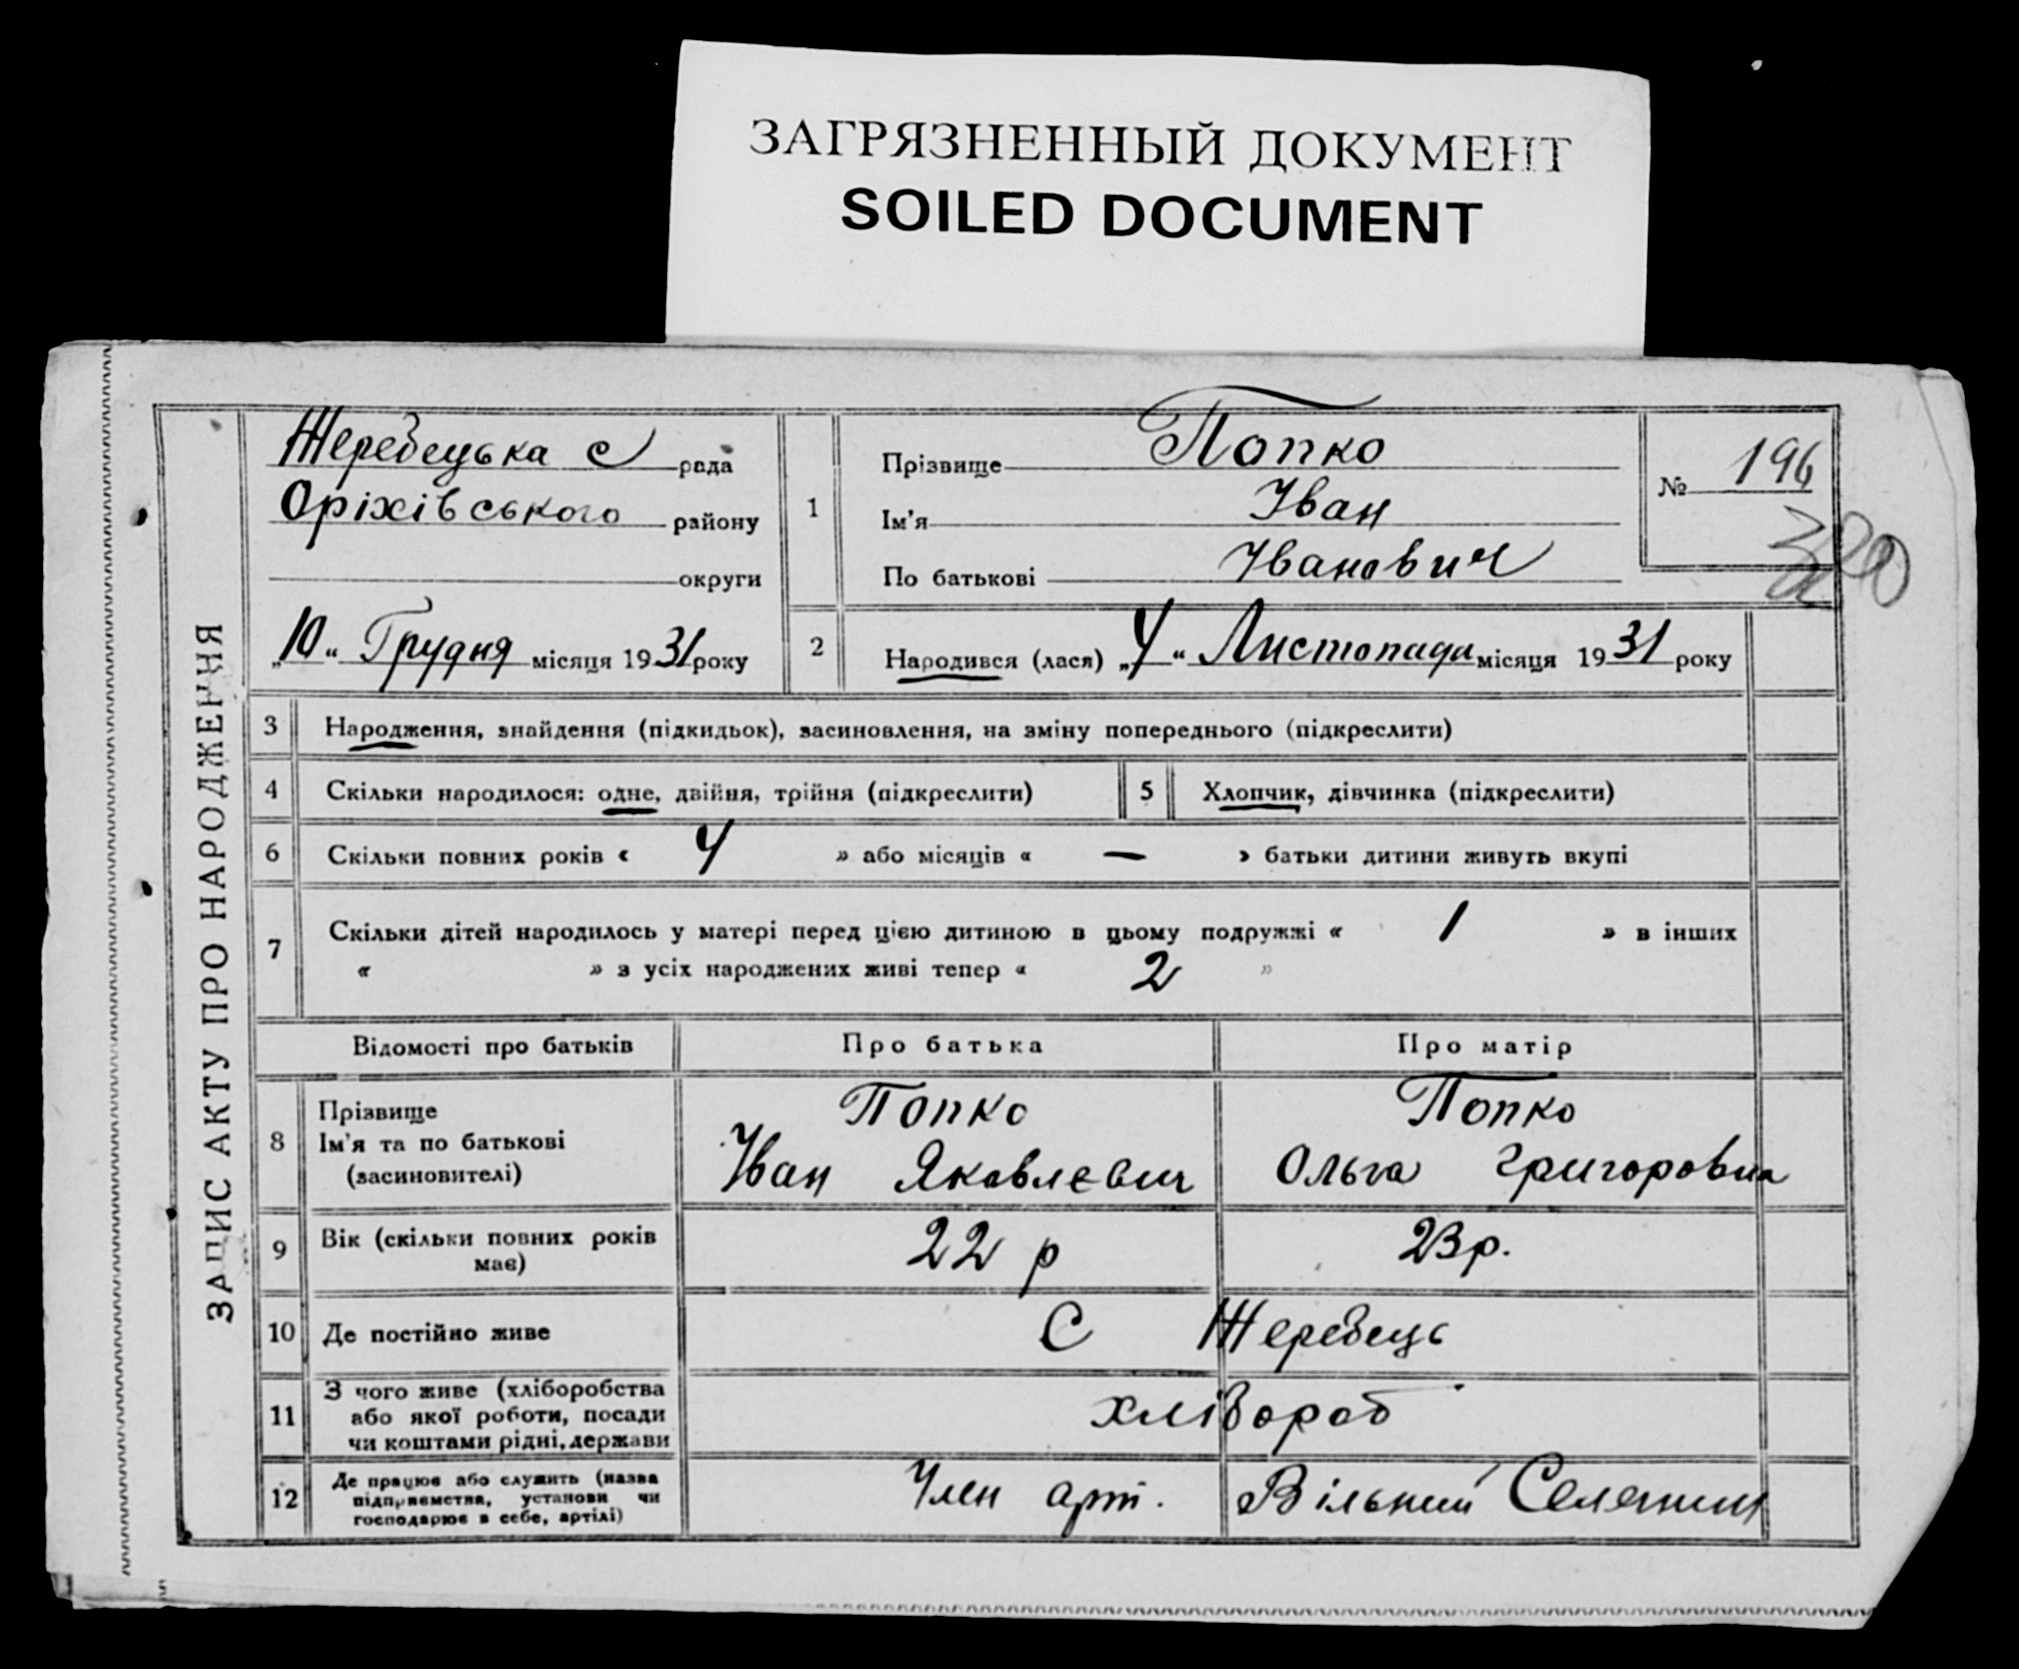 ЗАГРЯЗНЕННЫЙ ДОКУМЕНТ
SOILED DOCUMENT
ЗАПИС АКТУ ПРО НАРОДЖЕННЯ
Жеребецька с рада
Оріхівського району
округи
„10“ Грудня місяця 1931 року
1
Прізвище Попко
Ім'я Іван
По батькові Іванович
№ 196
2 Народився (лася) „4“ Листопада місяця 1931 року
3 Народження, знайдення (підкидьок), засиновлення, на зміну попереднього (підкреслити)
4 Скільки народилося: одне, двійня, трійня (підкреслити)
5 Хлопчик, дівчинка (підкреслити)
6 Скільки повних років « 4 » або місяців « — » батьки дитини живуть вкупі
7 Скільки дітей народилось у матері перед цією дитиною в цьому подружжі « 1 » в інших
« » з усіх народжених живі тепер « 2 »
Відомості про батьків Про батька Про матір
8 Прізвище
Ім'я та по батькові
(засиновителі)
Попко
Іван Яковлєвич
Попко
Ольга Григоровна
9 Вік (скільки повних років
має)
22 р
23 р.
10 Де постійно живе
С Жеребець
11 З чого живе (хліборобства
або якої роботи, посади
чи коштами рідні, держави
хлібороб
12 Де працює або служить (назва
підприємства, установи чи
господарює в себе, артілі)
Член арт. Вільний Селянин